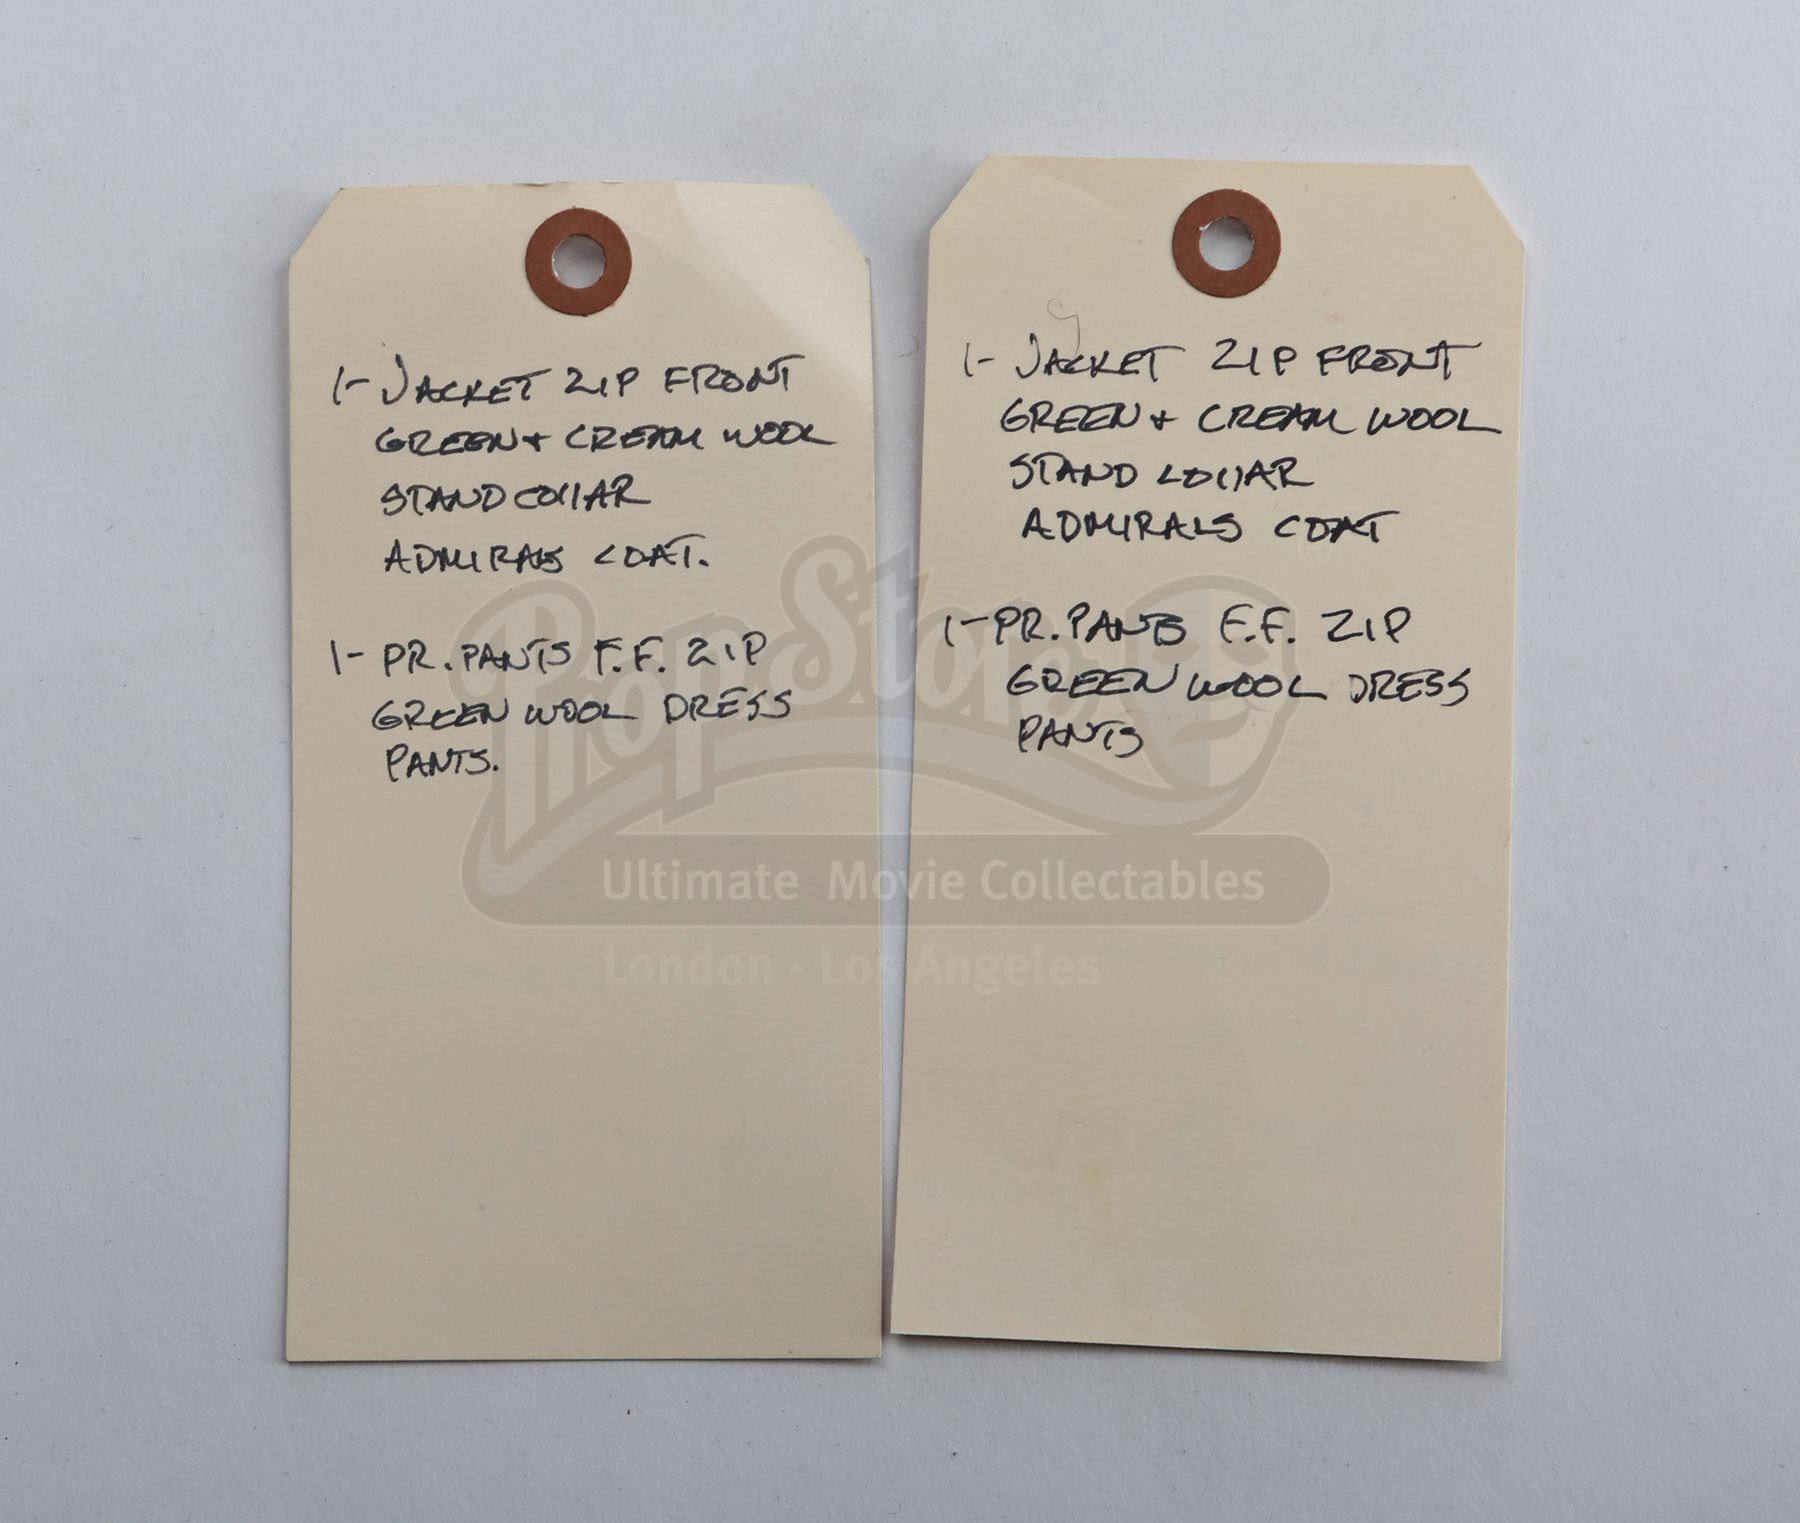 1- JACKET ZIP FRONT
GREEN + CREAM WOOL
STAND COLLAR
ADMIRALS COAT.
1- PR. PANTS F.F. ZIP
GREEN WOOL DRESS
PANTS.
1- JACKET ZIP FRONT
GREEN + CREAM WOOL
STAND COLLAR
ADMIRALS COAT
1- PR. PANTS F.F. ZIP
GREEN WOOL DRESS
PANTS
PropStore
Ultimate Movie Collectables
London - Los Angeles